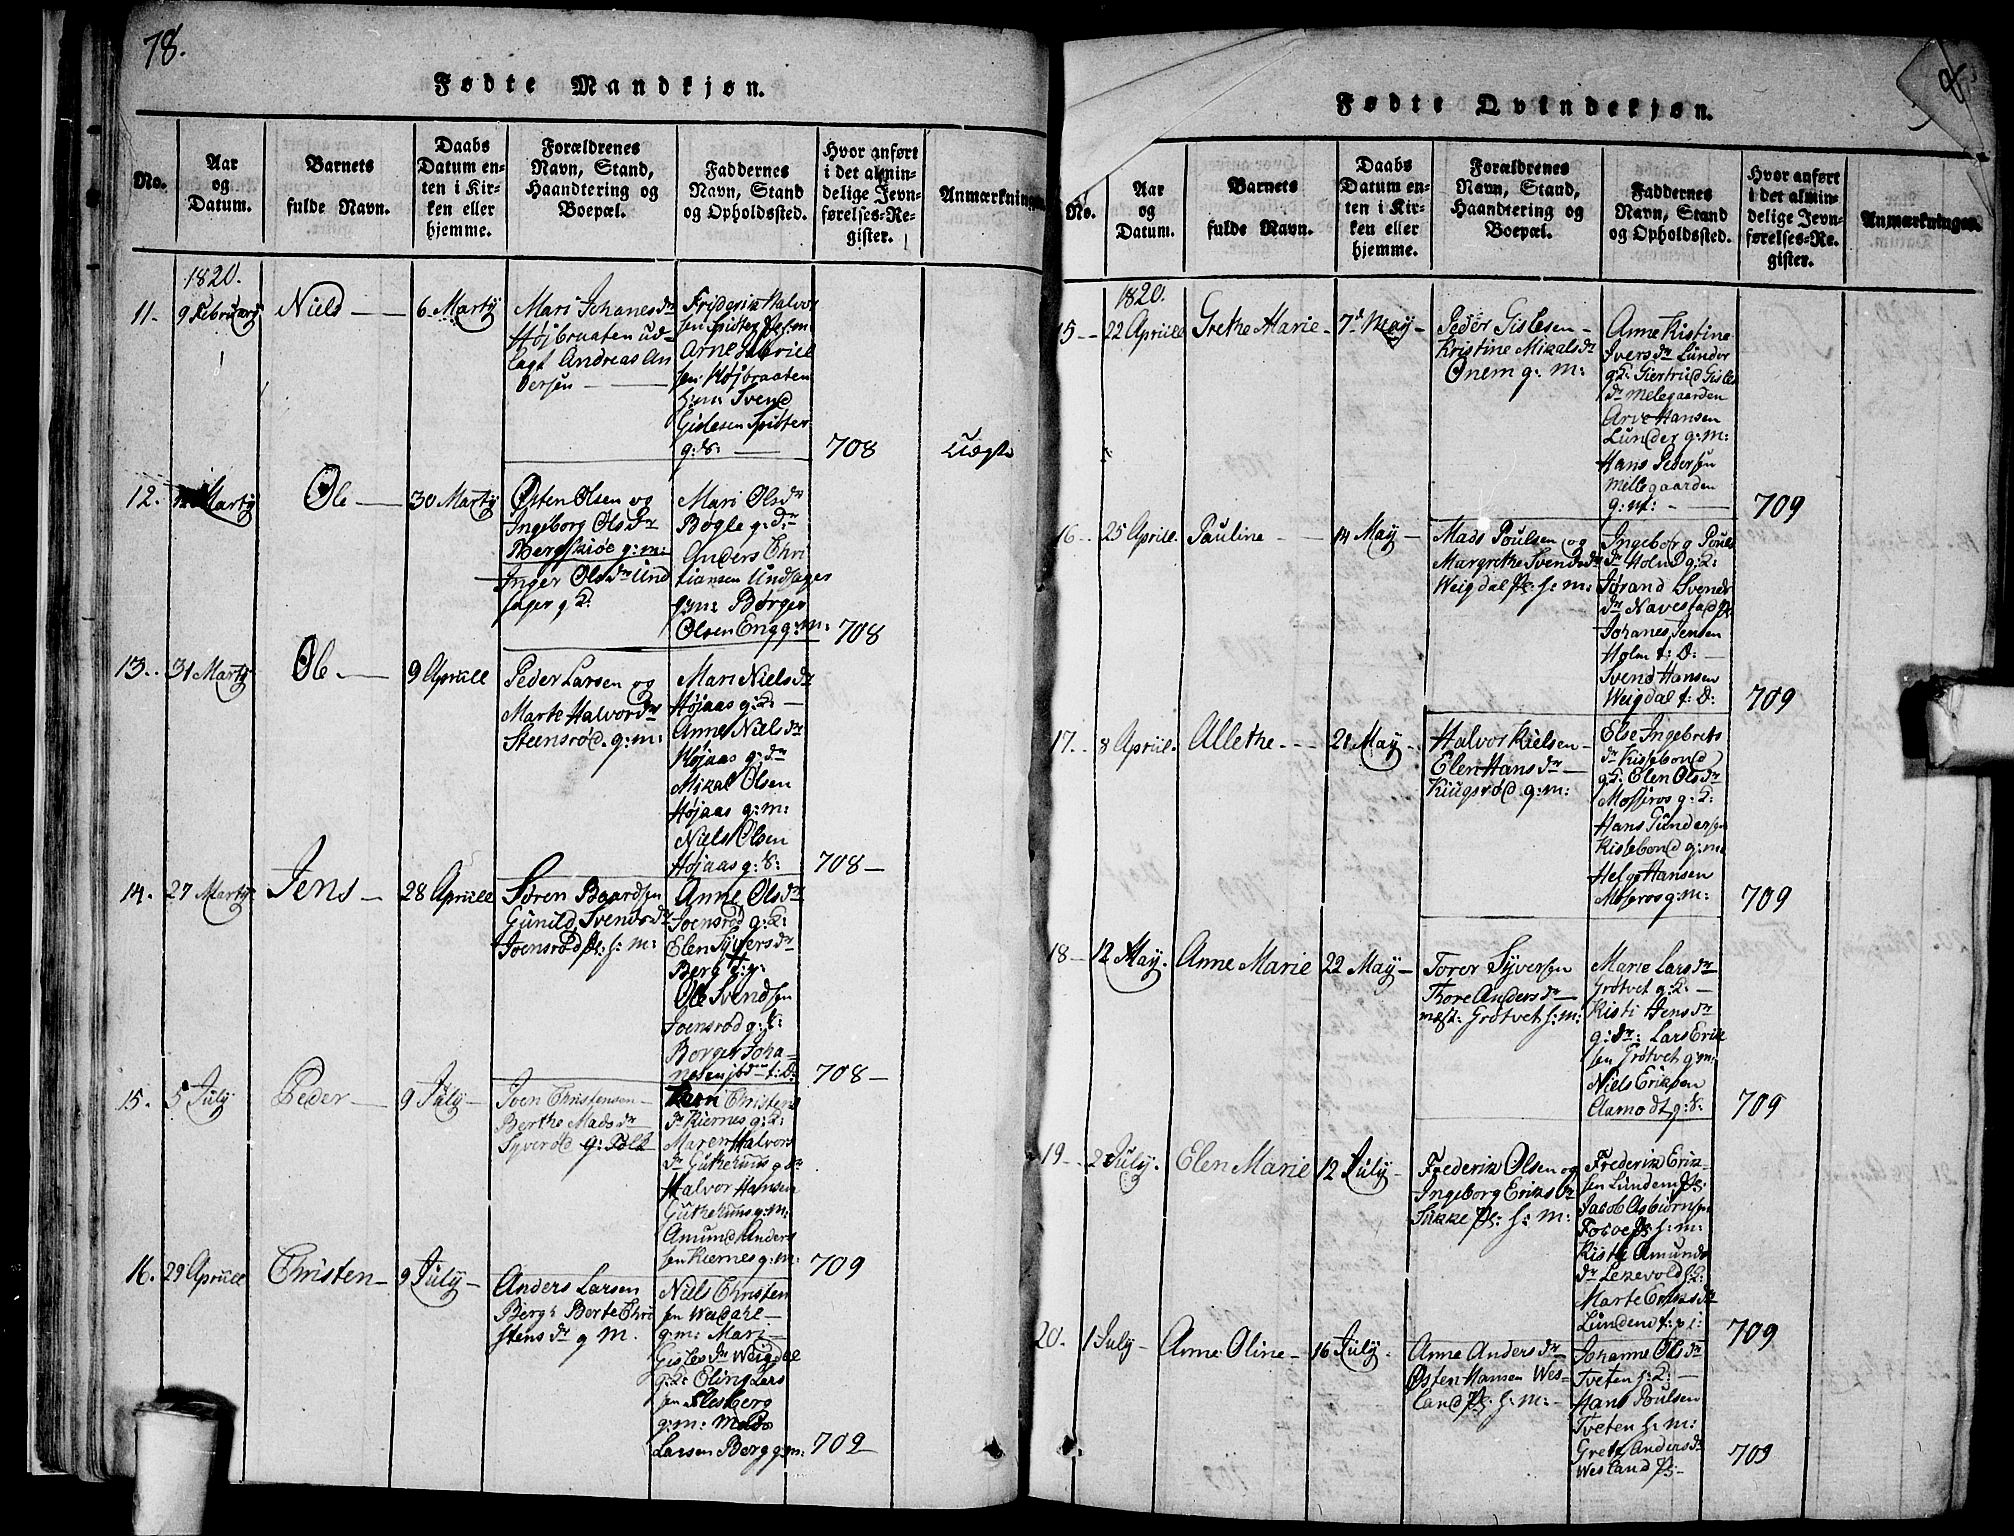 78.
Fødte Mandkjøn.
No.
Aar
og
Datum.
Barnets
fulde Navn.
Daabs
Datum en-
ten i Kir-
ken eller
hjemme.
Forældrenes
Navn, Stand,
Haandtering og
Boepæl.
Faddernes
Navn, Stand
og Opholdssted.
Hvor anført
i det almin-
delige Jevn-
førelses-Re-
gister.
Anmærkninger.
1820.
11. 9 Februarÿ
Niels
6 Martÿ
Mari Johanesdr
Højbraaten ud-
lagt Andreas An
dersen
Friderik Halvor
sen
Arne Gabriel
sen Højbraaten
Svend
Gislesen
708
Uægte
12. Martÿ
Ole
30 Martÿ
Østen Olsen og
Ingeborg Olsdr
g: m:
Inger Olsdr Und
g: K:
Mari Olsdr
Bøgle g: dr
Anders Chri
stiansen
Børger
Olsen Eng g: m:
708
13. 31 Martÿ
Ole
9 Apriill
Peder Larsen og
Marte Halvordr
Steensrød. g: m:
Mari Nielsdr
Højaas g: K:
Anne Nielsdr
Højaas g: dr
Mikal Olsen
Højaas g: m:
Niels Olsen
Højaas g: K:
708
14. 27 Martÿ
Jens
28 Apriill
Søren Baardsen
Gunild Svendsdr
Joensrød Pl: f: m:
Anne Olsdr
Joensrød g: K:
Elen Syversdr
Berg
Ole Svendsen
Joensrød g: K:
Borger Joha-
nesen
708
15. 5 July
Peder
9 July
Joen Christensen
Berthe Madsdr
Syverød g: Folk
Christens
dr Kiernes g: K:
Maren Halvors
dr
Halvor Hansen
g: m:
Amund Anders
sen Kiernes g: m:
709
16. 29 Apriill
Christen
9 July
Anders Larsen
Berg: Berte Chri
stensdr g M.
Niels Christen
sen
g: m: Mari
Gislesdr Weigdal
g: K: Eling Lars
sen
g: m: Mads
Larsen Berg g: m:
709
Fødte Qvindekjøn.
No.
Aar
og
Datum.
Barnets
fulde Navn.
Daabs
Datum en-
ten i Kir-
ken eller
hjemme.
Forældrenes
Navn, Stand,
Haandtering og
Boepæl.
Faddernes
Navn, Stand
og Opholdssted.
Hvor anført
i det almin-
delige Jevn-
førelses-Re-
gister.
Anmærkninger.
1820.
15 22 Apriill
Grethe Marie
7d May
Peder Gislesen
Kristine Mikalsdr
Onem g: m:
Anne Kistine
Iversdr Lunder
g: K: Giertrud Gisles
dr Melegaarden
Arve Hansen
Lunder g: m:
Hans Pedersen
Mellegaarden
g: m:
709
16. 25 Apriil.
Pauline
14 May
Mads Poulsen og
Margrethe Svendsdr
Weigdal Pl: f: m:
Ingeborg Pouls
dr Holm g: K:
Jørand Svends
dr Navestad
Johanes Jensen
Holm f: D:
Svend Hansen
Weigdal f: D:
709
17. 8 Apriil.
Allethe
21 May
Halvor Kielsen
Elen Hansdr
g: m:
Else Ingebrets
dr Kislebond
g: K: Elen Olsdr
Mosseros g: K:
Hans Gundersen
Kislebond g: m:
Helge Hansen
Moseros g: m:
709
18 12 May.
Anne Marie
22 May
Toror Syversen
Thore Andersdr
Grotvet f: m:
Marie Larsdr
Grotvet g: K:
Kisti Jensdr
g: dr: Lars Erik
sen Grotvet g: m:
Niels Eriksen
Aamodt g: K:
709
19 2 July.
Elen Marie
12 July
Frederik Olsen og
Ingeborg Eriksdr
Sukke Pl: f: m:
Frederik Erik-
sen Lunden Pl:
Jacob Asbiørnsen
f: m:
Kisti Amunds
dr
Marte Eriksdr
Lunden f: pl:
709
20. 1 July
Anne Oline
16 July.
Anne Andersdr
Østen Hansen Wes-
land Pl: f: m:
Johanne Olsdr
Tveten f: K:
Hans Poulsen
Tveten f: m:
Grete Andersdr
Wesland Pl:
709